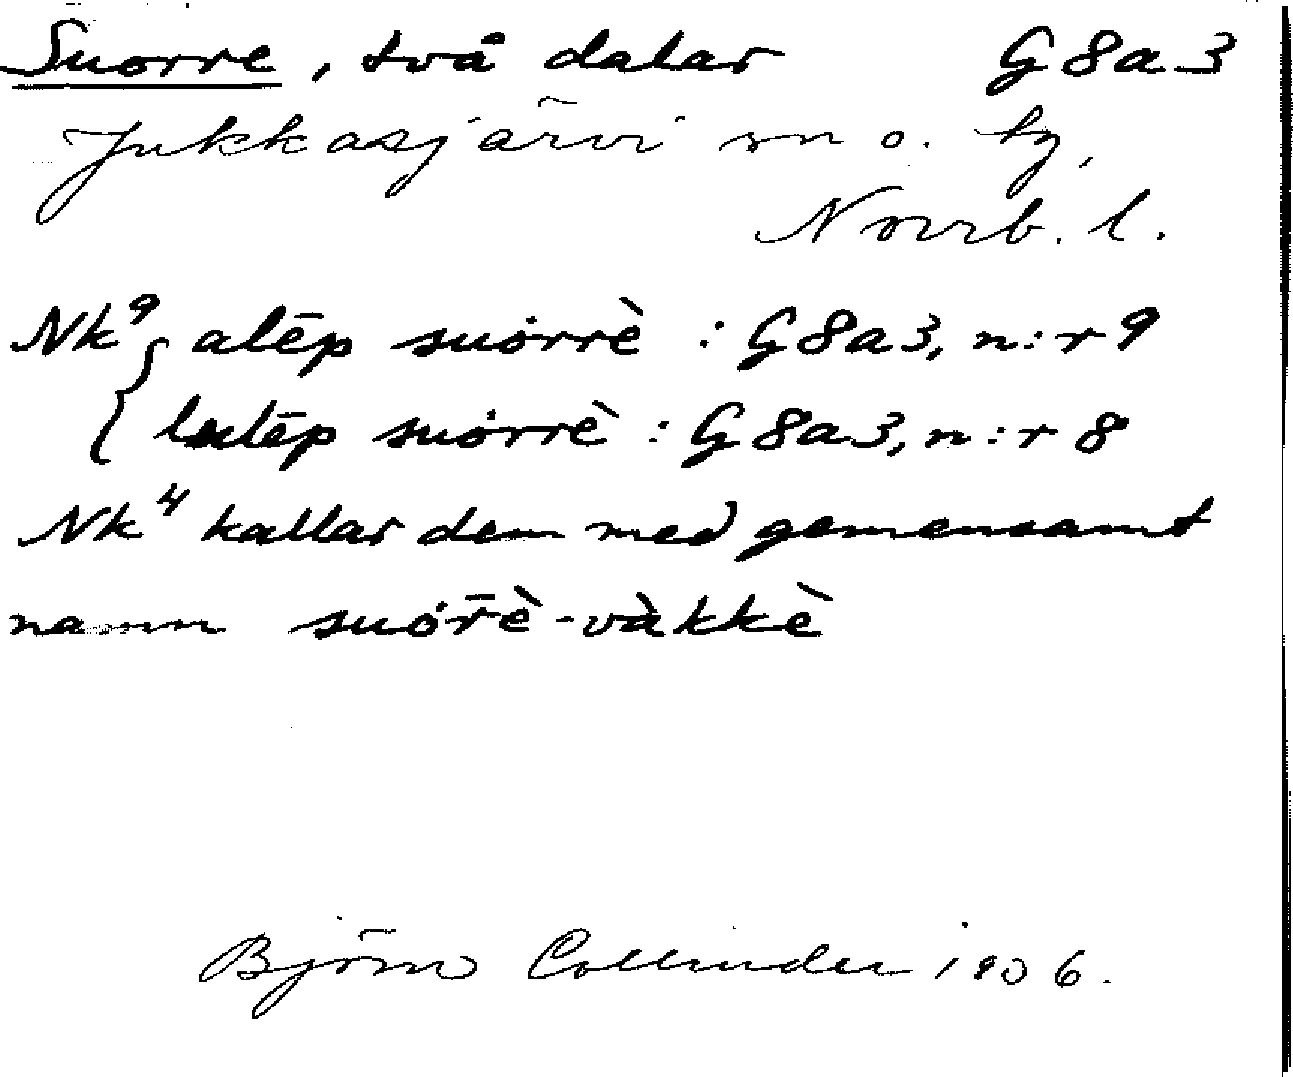 Suorre, två dalar G8a3
Jukkasjärvi sn o. tg,
Norrb. l.
Nk⁹ alēp suȯrrè : G8a3, n:r 9
lulēp suȯrrè : G8a3, n:r 8
Nk⁴ kallar dem med gemensamt
namn suȯr̄è-vàkkè
Björn Collinder 1906.